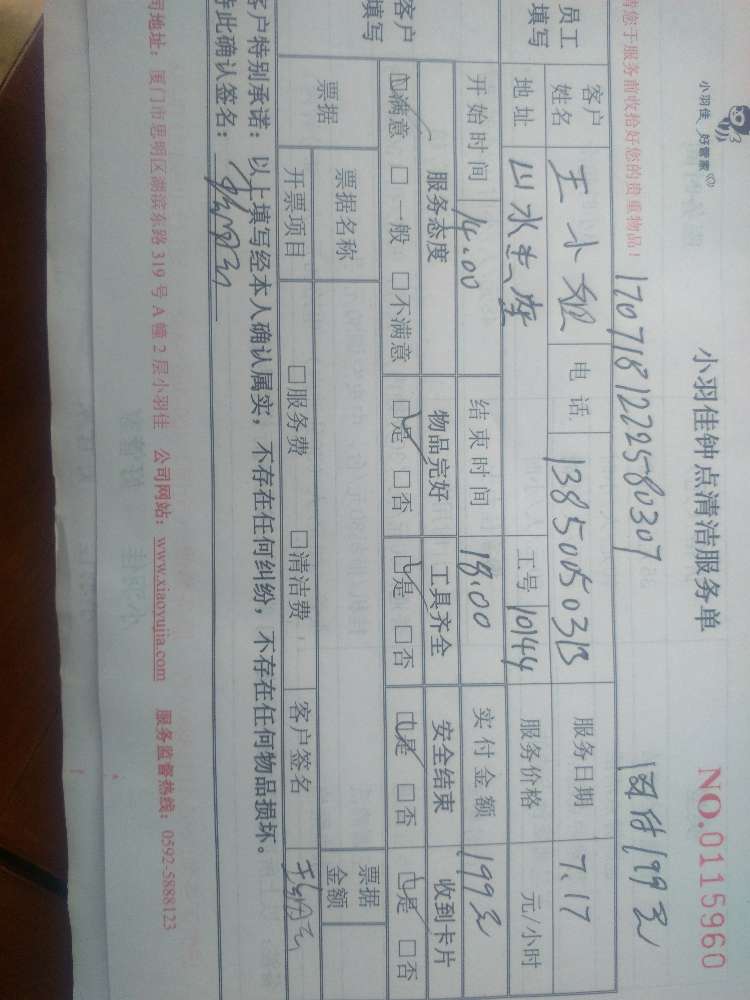 小羽佳 好管家
小羽佳钟点清洁服务单
NO.0115960
请您于服务前收拾好您的贵重物品!
1707181222580307
199元
员工填写
客户姓名 王小姐 电话 服务日期 7.17
地址 山水 工号 10144 服务价格 元/小时
开始时间 14.00 结束时间 18.00 实付金额 199元
客户填写
服务态度 物品完好 工具齐全 安全结束 收到卡片
☑满意 □一般 □不满意 ☑是 □否 ☑是 □否 ☑是 □否 ☑是 □否
票据 票据名称 票据金额
开票项目 □服务费 □清洁费 客户签名
客户特别承诺:以上填写经本人确认属实,不存在任何纠纷,不存在任何物品损坏。
特此确认签名:
司地址:厦门市思明区湖滨东路319号A幢2层小羽佳 公司网站:www.xiaoyujia.com 服务监督热线:0592-5888123